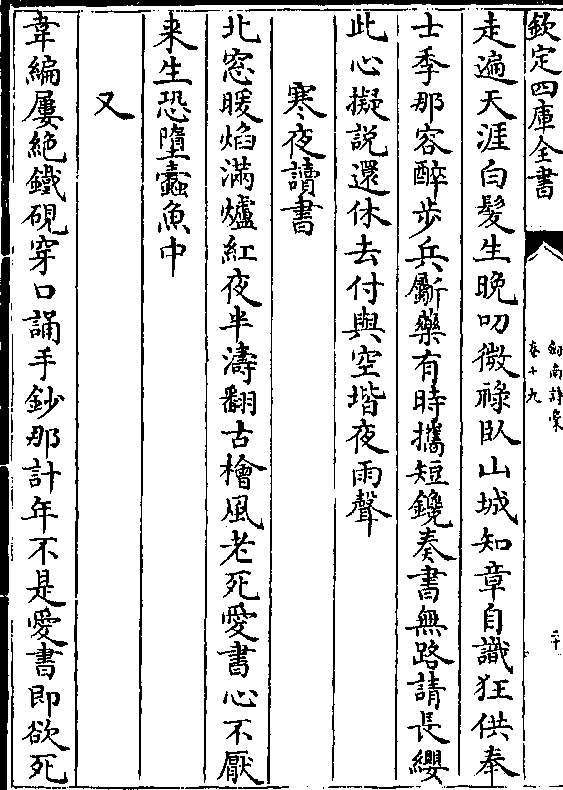 欽定四庫全書
劍南詩稾
卷十九
二十
走遍天涯白髮生晚叨微祿臥山城知章自識狂供奉
士季那容醉步兵斸藥有時攜短鑱奏書無路請長纓
此心擬說還休去付與空堦夜雨聲
寒夜讀書
北窓暖焰滿爐紅夜半濤翻古檜風老死愛書心不厭
来生恐墮蠹魚中
又
韋編屢絶鐵硯穿口誦手鈔那計年不是愛書即欲死